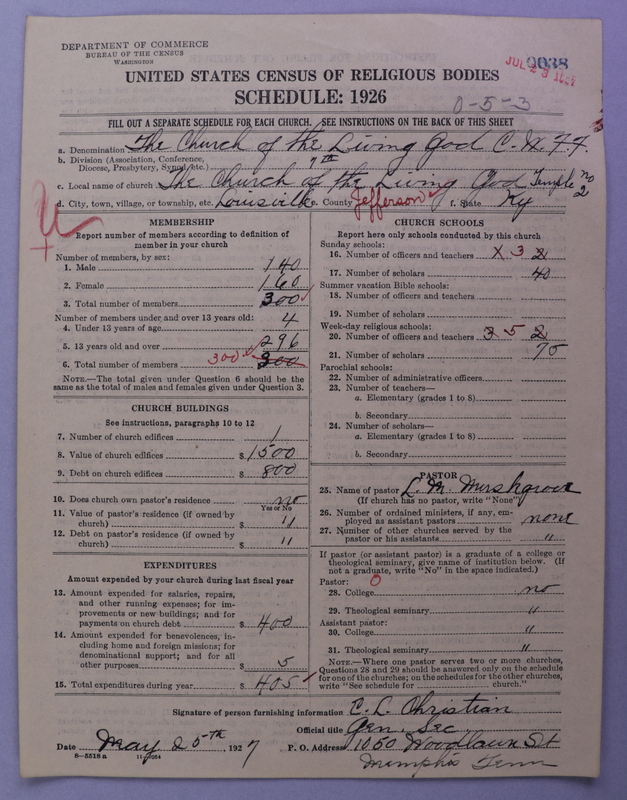 DEPARTMENT OF COMMERCE
BUREAU OF THE CENSUS
WASHINGTON
0038
UNITED STATES CENSUS OF RELIGIOUS BODIES
SCHEDULE: 1926
0-5-3
FILL OUT A SEPARATE SCHEDULE FOR EACH CHURCH. SEE INSTRUCTIONS ON THE BACK OF THIS SHEET
a. Denomination The Church of the Living God C. W. F. F.
b. Division (Association, Conference, Diocese, Presbytery, Synod, etc.) 7th
c. Local name of church The Church of the Living God Temple no 2
d. City, town, village, or township, etc. Louisville e. County Jefferson f. State Ky
MEMBERSHIP
Report number of members according to definition of member in your church
Number of members, by sex:
1. Male 140
2. Female 160
3. Total number of members 300
Number of members under and over 13 years old:
4. Under 13 years of age 4
5. 13 years old and over 296
6. Total number of members 300 300
NOTE.—The total given under Question 6 should be the same as the total of males and females given under Question 3.
CHURCH BUILDINGS
See instructions, paragraphs 10 to 12
7. Number of church edifices 1
8. Value of church edifices $1500
9. Debt on church edifices $800
10. Does church own pastor's residence no
Yes or No
11. Value of pastor's residence (if owned by church) $ "
12. Debt on pastor's residence (if owned by church) $ "
EXPENDITURES
Amount expended by your church during last fiscal year
13. Amount expended for salaries, repairs, and other running expenses; for improvements or new buildings; and for payments on church debt $ 400
14. Amount expended for benevolences, including home and foreign missions; for denominational support; and for all other purposes $ 5
15. Total expenditures during year $ 405
CHURCH SCHOOLS
Report here only schools conducted by this church
Sunday schools:
16. Number of officers and teachers X 3 2
17. Number of scholars 40
Summer vacation Bible schools:
18. Number of officers and teachers
19. Number of scholars
Week-day religious schools:
20. Number of officers and teachers 3 5 2
21. Number of scholars 75
Parochial schools:
22. Number of administrative officers
23. Number of teachers—
a. Elementary (grades 1 to 8)
b. Secondary
24. Number of scholars—
a. Elementary (grades 1 to 8)
b. Secondary
PASTOR
25. Name of pastor L. M.
(If church has no pastor, write "None")
26. Number of ordained ministers, if any, employed as assistant pastors none
27. Number of other churches served by the pastor or his assistants "
If pastor (or assistant pastor) is a graduate of a college or theological seminary, give name of institution below. (If not a graduate, write "No" in the space indicated.)
Pastor: 0
28. College no
29. Theological seminary "
Assistant pastor:
30. College "
31. Theological seminary "
NOTE.—Where one pastor serves two or more churches, Questions 28 and 29 should be answered only on the schedule for one of the churches; on the schedules for the other churches, write "See schedule for church."
Signature of person furnishing information C. L. Christian
Official title Gen. Sec
Date May 25th, 1927 P. O. Address 1050 Woodlawn St
8—5518a
Memphis Tenn